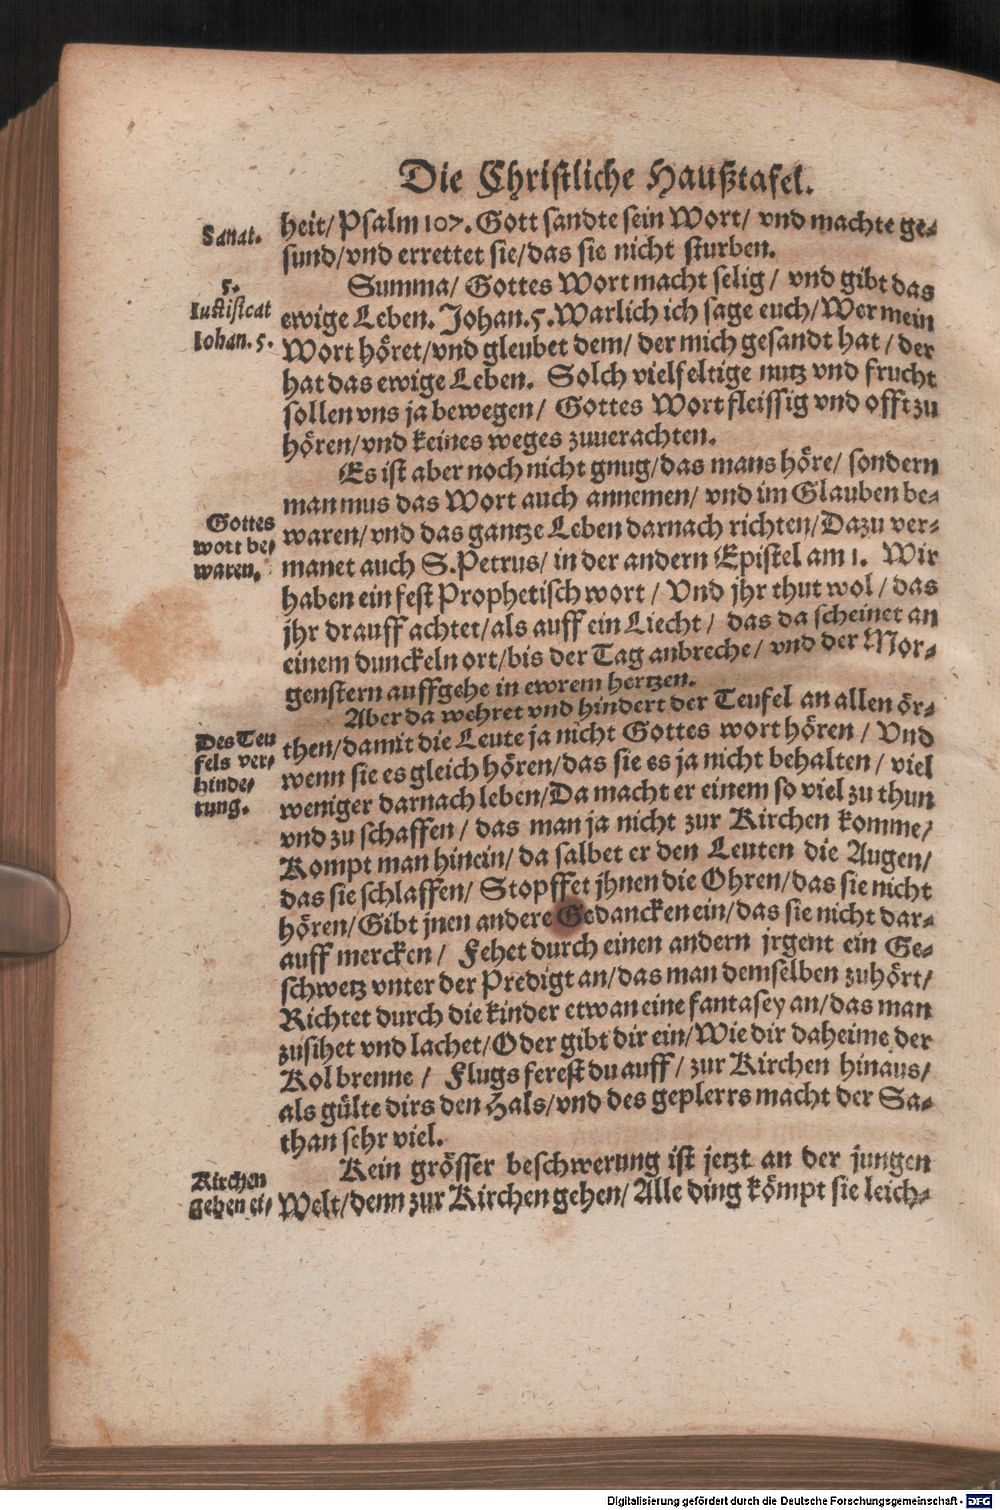 Die Christliche Haußtafel.
Sanat.
heit/Psalm 107. Gott sandte sein Wort/ vnd machte ge-
sund/vnd errettet sie/das sie nicht sturben.
5.
Iustificat
Iohan. 5.
Summa/ Gottes Wort macht selig/ vnd gibt das
ewige Leben. Johan. 5. Warlich ich sage euch/Wer mein
Wort höret/vnd gleubet dem/ der mich gesandt hat/ der
hat das ewige Leben. Solch vielfeltige nutz vnd frucht
sollen vns ja bewegen/ Gottes Wort fleissig vnd offt zu
hören/vnd keines weges zuuerachten.
Es ist aber noch nicht gnug/das mans höre/ sondern
man mus das Wort auch annemen/ vnd im Glauben be-
Gottes
wort be-
waren.
waren/vnd das gantze Leben darnach richten/Dazu ver-
manet auch S. Petrus/ in der andern Epistel am 1. Wir
haben ein fest Prophetisch wort/ Vnd jhr thut wol/ das
jhr drauff achtet/als auff ein Liecht/ das da scheinet an
einem dunckeln ort/bis der Tag anbreche/ vnd der Mor-
genstern auffgehe in ewrem hertzen.
Aber da wehret vnd hindert der Teufel an allen ör-
Des Teu
fels ver-
hinde-
rung.
then/damit die Leute ja nicht Gottes wort hören/ Vnd
wenn sie es gleich hören/das sie es ja nicht behalten/ viel
weniger darnach leben/Da macht er einem so viel zu thun
vnd zu schaffen/ das man ja nicht zur Kirchen komme/
Kompt man hinein/ da salbet er den Leuten die Augen/
das sie schlaffen/ Stopffet jhnen die Ohren/das sie nicht
hören/Gibt jnen andere Gedancken ein/das sie nicht dar-
auff mercken/ Fehet durch einen andern jrgent ein Ge-
schwetz vnter der Predigt an/das man demselben zuhört/
Richtet durch die kinder etwan eine fantasey an/das man
zusihet vnd lachet/Oder gibt dir ein/Wie dir daheime der
Kol brenne/ Flugs ferest du auff/ zur Kirchen hinaus/
als gülte dirs den Hals/vnd des geplerrs macht der Sa-
than sehr viel.
Kirchen
gehen ei-
Kein grösser beschwerung ist jetzt an der jungen
Welt/denn zur Kirchen gehen/Alle ding kömpt sie leich-
Digitalisierung gefördert durch die Deutsche Forschungsgemeinschaft - DFG